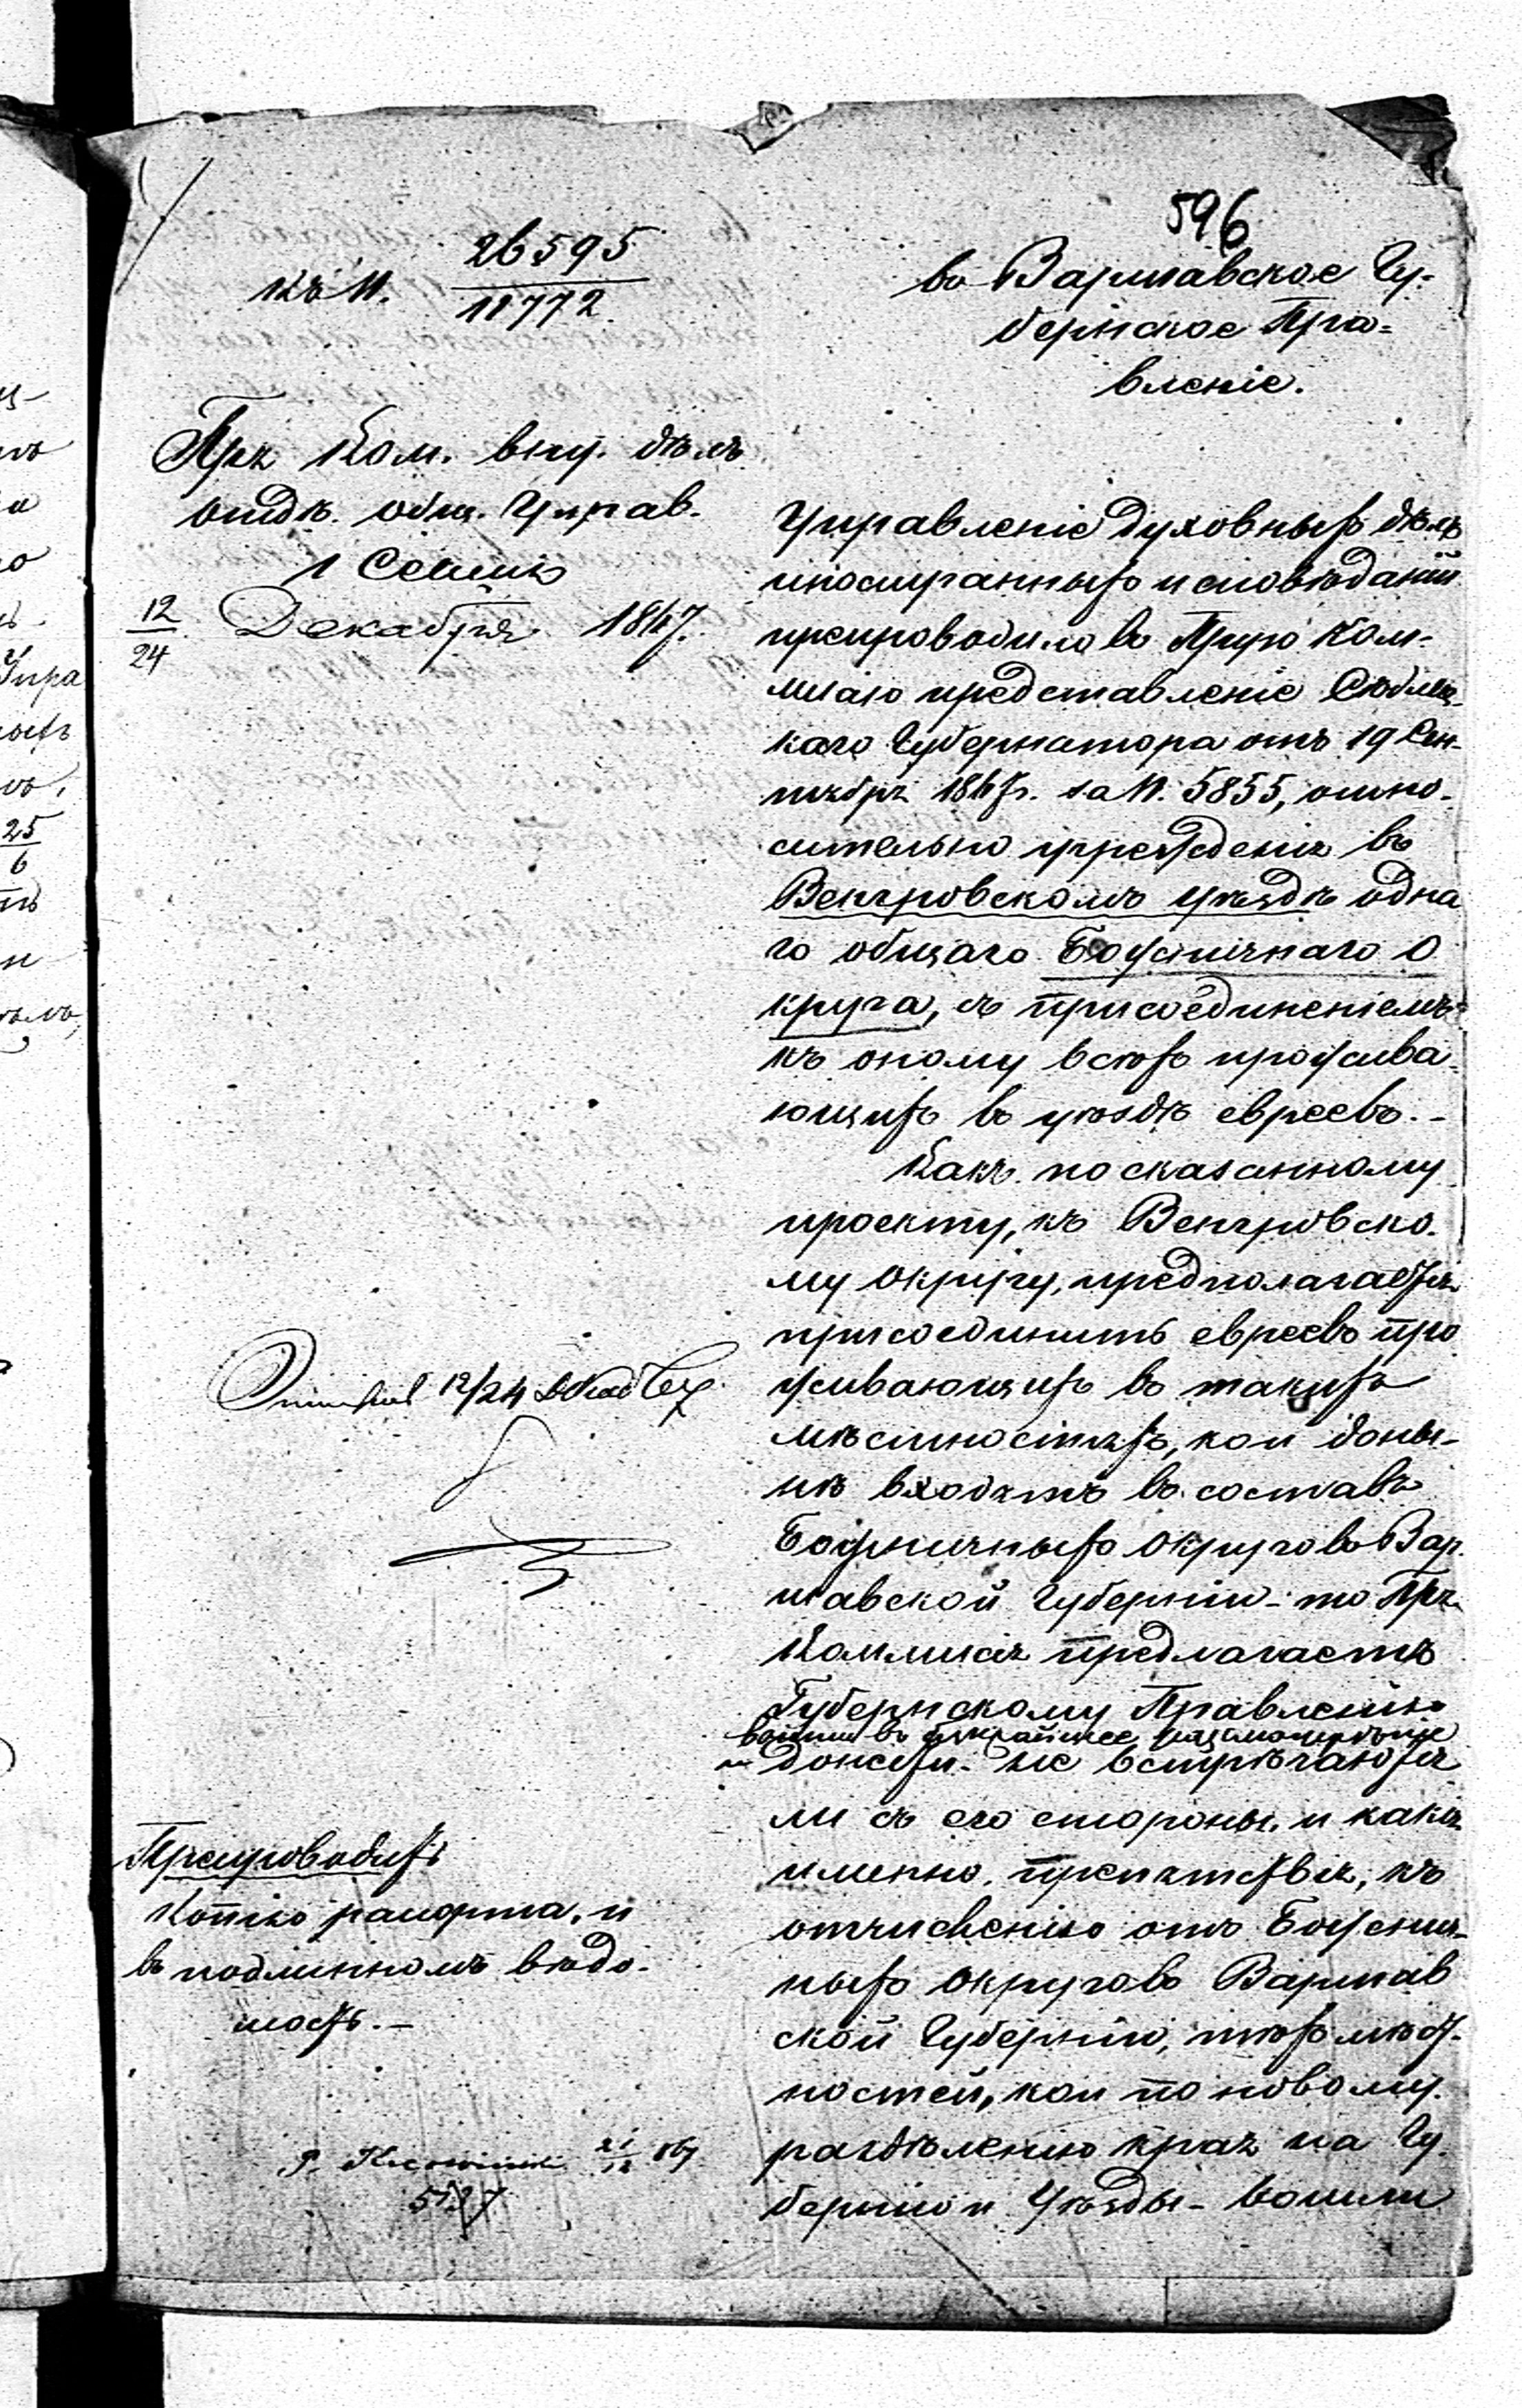 596
26595
къ N.
18772
въ Варшавское Гу-
бернское Пра-
вленіе.
Пра Ком. вну. дѣлъ
отдѣ. общ. Управ.
1 Секціи
12
24
Декабря 1867.
Управленіе Духовныхъ дѣлъ
иностранныхъ исповѣданій
препроводило въ Прую Ком-
мисію представленіе Сѣдлец-
каго Губернатора отъ 19 Сен-
тября 1867г. за N. 5855, отно-
сительно учрежденія въ
Венгровскомъ уѣздѣ одна
го общаго Божничнаго О
круга, съ присоединеніемъ
къ оному всѣхъ прожива-
ющихъ въ уѣздѣ евреевъ.-
Какъ по сказанному
проекту, къ Венгровско-
му округу, предполагается
присоединить евреевъ про
живающихъ въ такихъ
мѣстностяхъ, кои доны-
нѣ входятъ въ составъ
Божничныхъ округовъ Вар-
шавской Губерніи - то Пра
Коммисія предлагаетъ
Губернскому Правленію
войти въ
и донести - не встрѣчаются
ли съ его стороны, и какія
именно, препятствія, къ
отчисленію отъ Божнич-
ныхъ округовъ Варшав
ской Губерніи, тѣхъ мѣст-
ностей, кои по новому
раздѣленію края на Гу-
берніи и Уѣзды - вошли
12/24
Препроводить
Копію рапорта, и
въ подлинномъ вѣдо-
мость.-
867